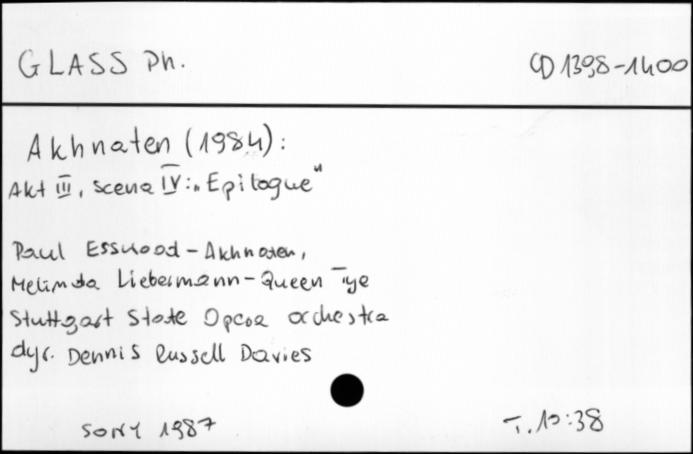 GLASS Ph. CD 1398-1400
Akhnaten (1984):
Akt III, scena IV: „Epilogue"
Paul Esswood - Akhnaten,
Melinda Liebermann - Queen Tye
Stuttgart State Opera orchestra
dyr. Dennis Russell Davies
SONY 1987 T. 10:38